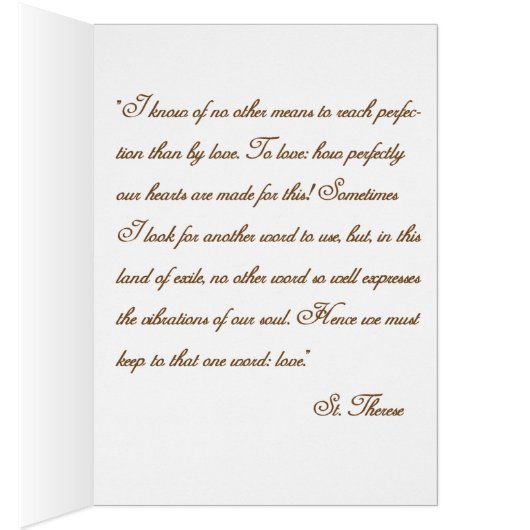 "I know of no other means to reach perfec-
tion than by love. To love: how perfectly
our hearts are made for this! Sometimes
I look for another word to use, but, in this
land of exile, no other word so well expresses
the vibrations of our soul. Hence we must
keep to that one word: love."
St. Therese